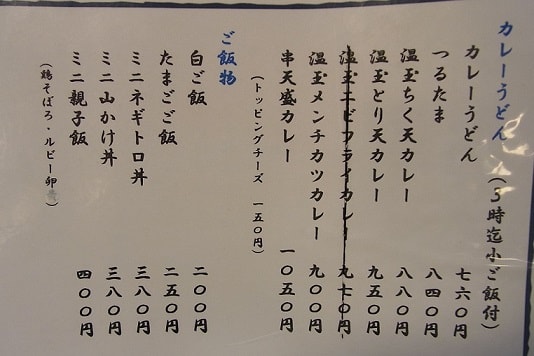 カレーうどん（3時迄小ご飯付）
カレーうどん 七六〇円
つるたま 八四〇円
温玉ちく天カレー 八八〇円
温玉とり天カレー 九五〇円
温玉エビフライカレー 九七〇円
温玉メンチカツカレー 九〇〇円
串天盛カレー 一〇五〇円
（トッピングチーズ 一五〇円）
ご飯物
白ご飯 二〇〇円
たまごご飯 二五〇円
ミニネギトロ丼 三八〇円
ミニ山かけ丼 三八〇円
ミニ親子飯 四〇〇円
（鶏そぼろ・ルビー卵）